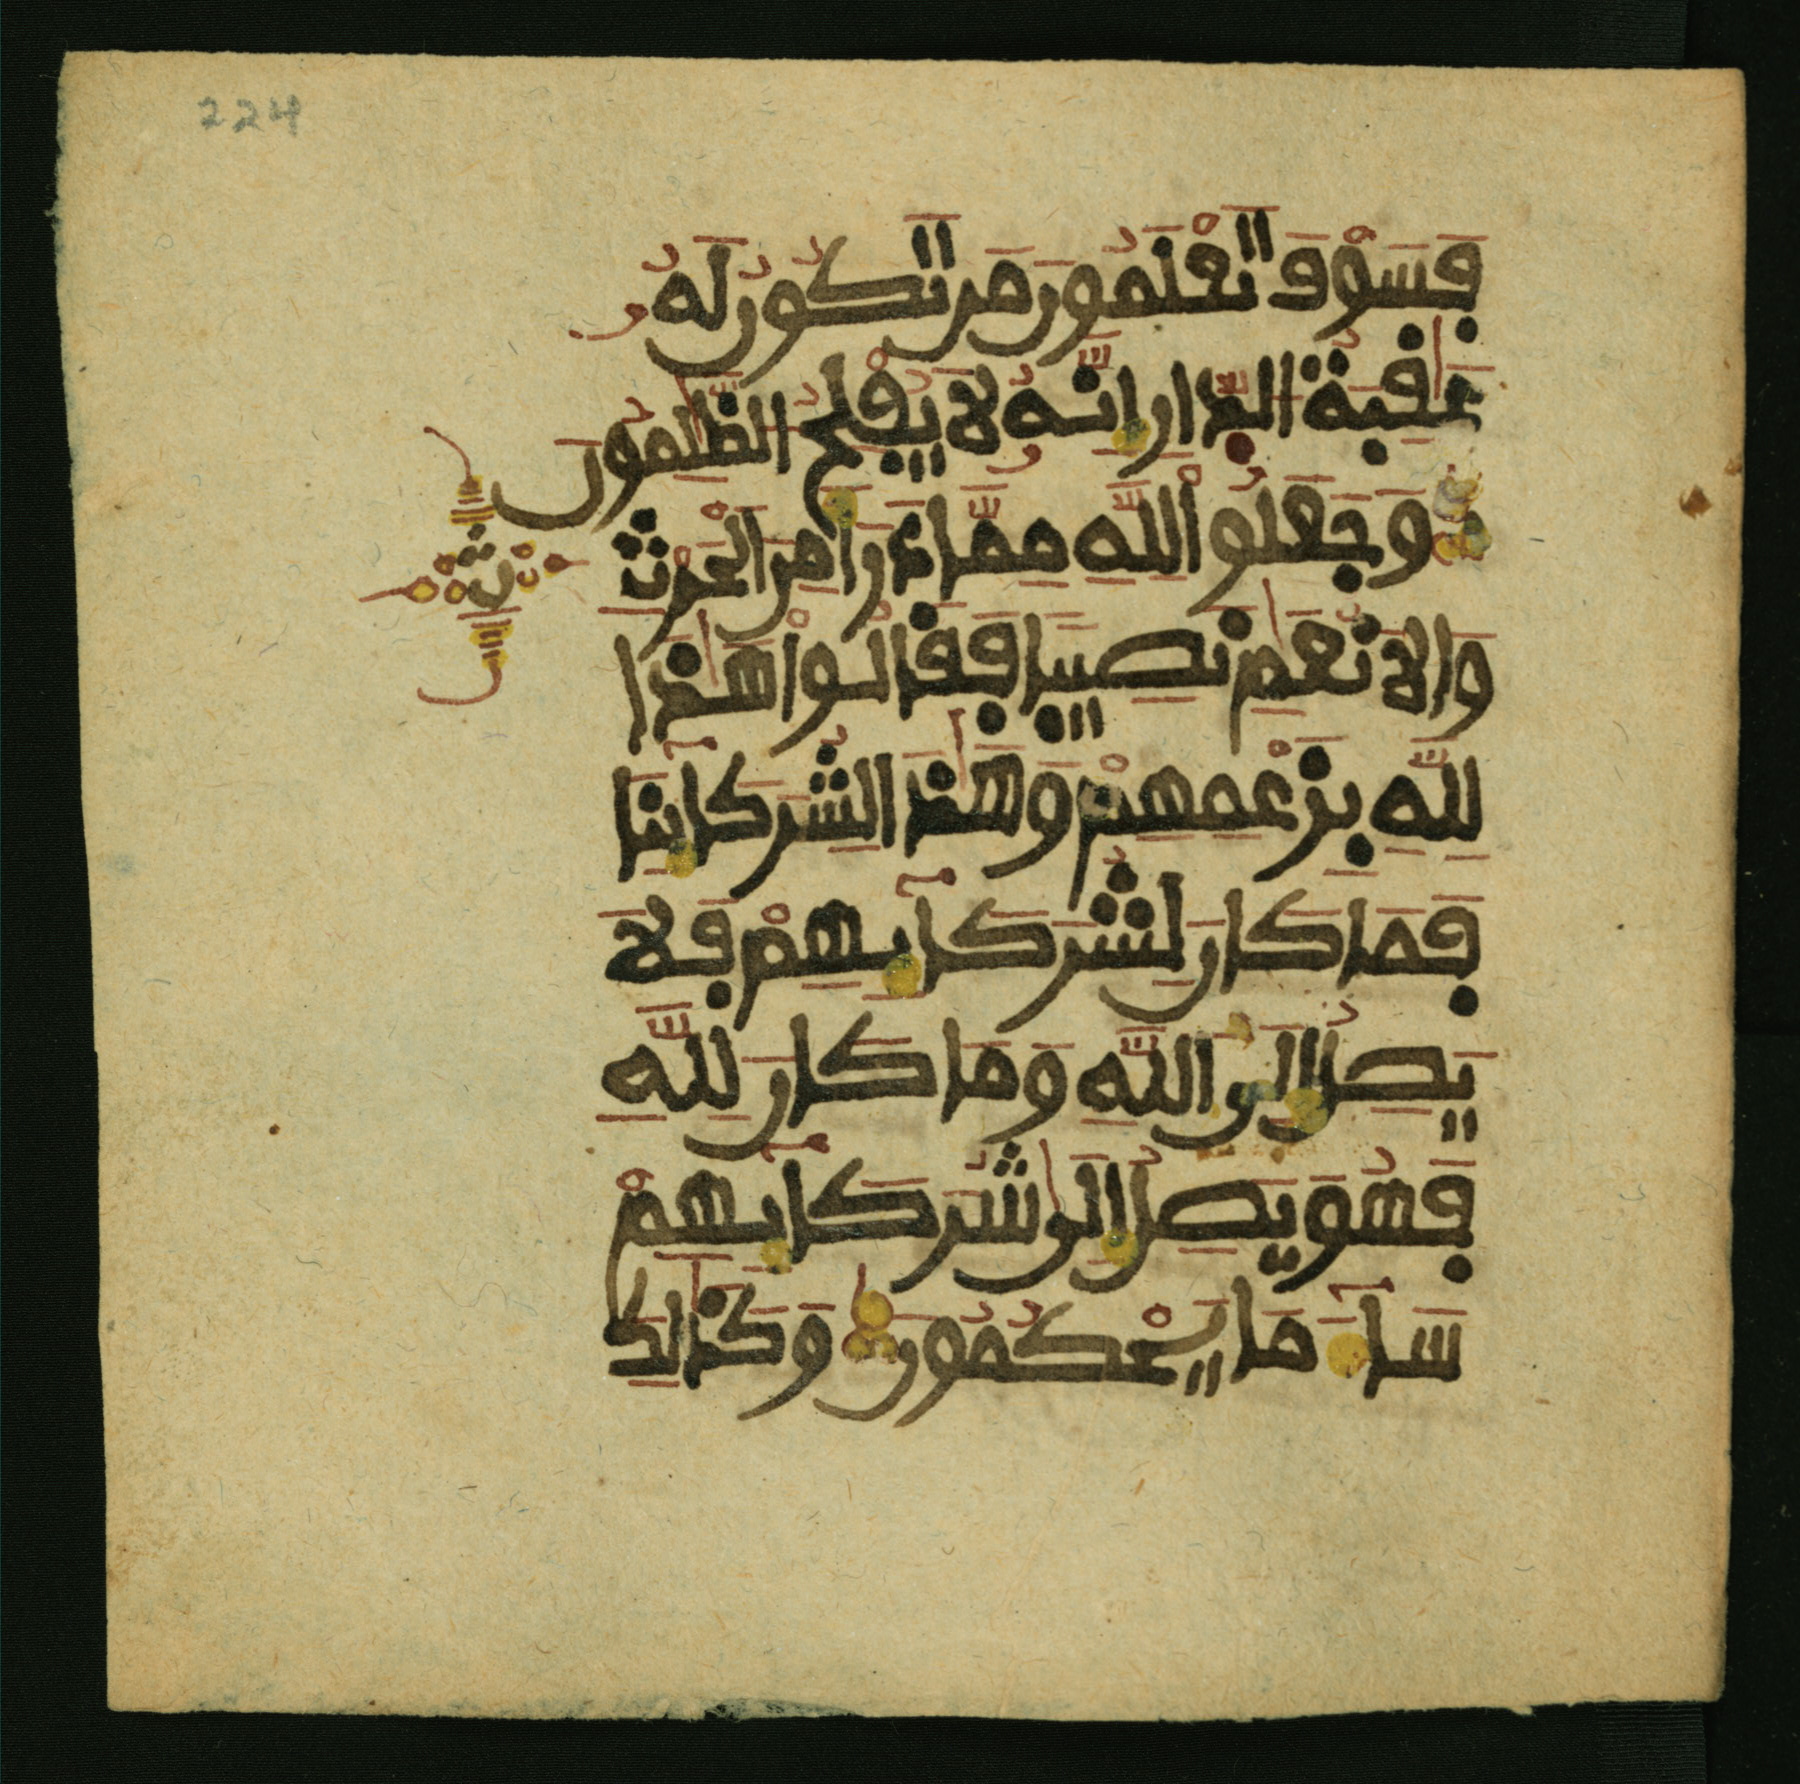 224
فَسَوْفَ تَعْلَمُونَ مَن تَكُونُ لَهُ
عَٰقِبَةُ الدِّارِ إِنَّهُ لَا يُفْلِحُ الظَّٰلِمُونَ
وَجَعَلُواْ لِلَّهِ مِمَّا ذَرَأَ مِنَ الْحَرْثِ
ث
وَالَانْعَٰمِ نَصِيبا فَقَالُواْ هَٰذَا
لِلَّهِ بِزَعْمِهِمْ وَهَٰذَا لِشُرَكَآئِنَا
فَمَا كَانَ لِشُرَكَآئِهِمْ فَلَا
يَصِلُ إِلَى اللَّهِ وَمَا كَانَ لِلَّهِ
فَهُوَ يَصِلُ إِلَىٰ شُرَكَآئِهِمْ
سَآءَ مَا يَحْكُمُونَ وَكَذَٰلِكَ